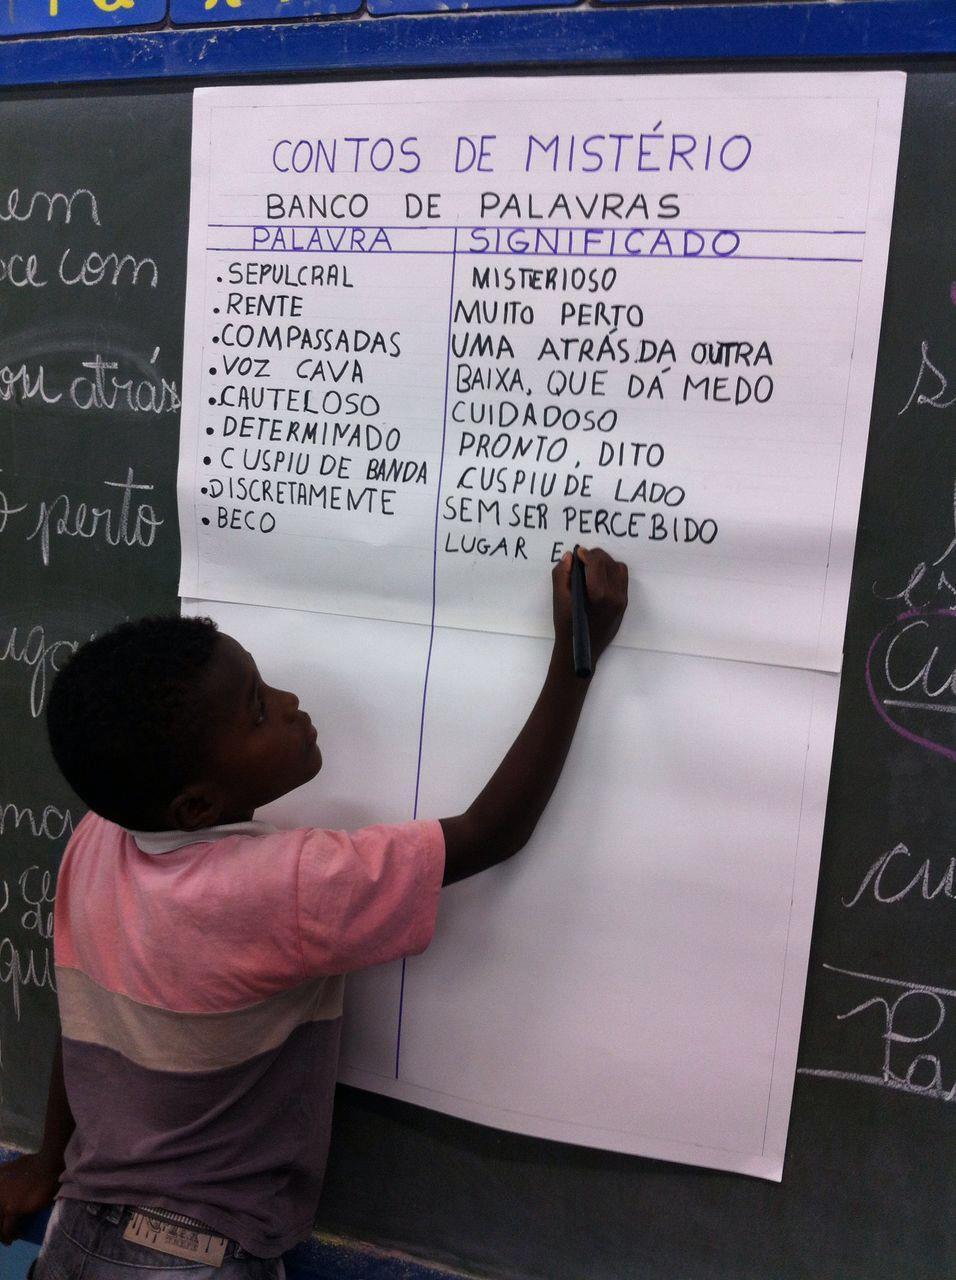 CONTOS DE MISTÉRIO
BANCO DE PALAVRAS
PALAVRA SIGNIFICADO
. SEPULCRAL MISTERIOSO
. RENTE MUITO PERTO
. COMPASSADAS UMA ATRÁS DA OUTRA
. VOZ CAVA BAIXA, QUE DÁ MEDO
. CAUTELOSO CUIDADOSO
. DETERMINADO PRONTO, DITO
. CUSPIU DE BANDA CUSPIU DE LADO
. DISCRETAMENTE SEM SER PERCEBIDO
. BECO LUGAR E
em
com
atrás
perto